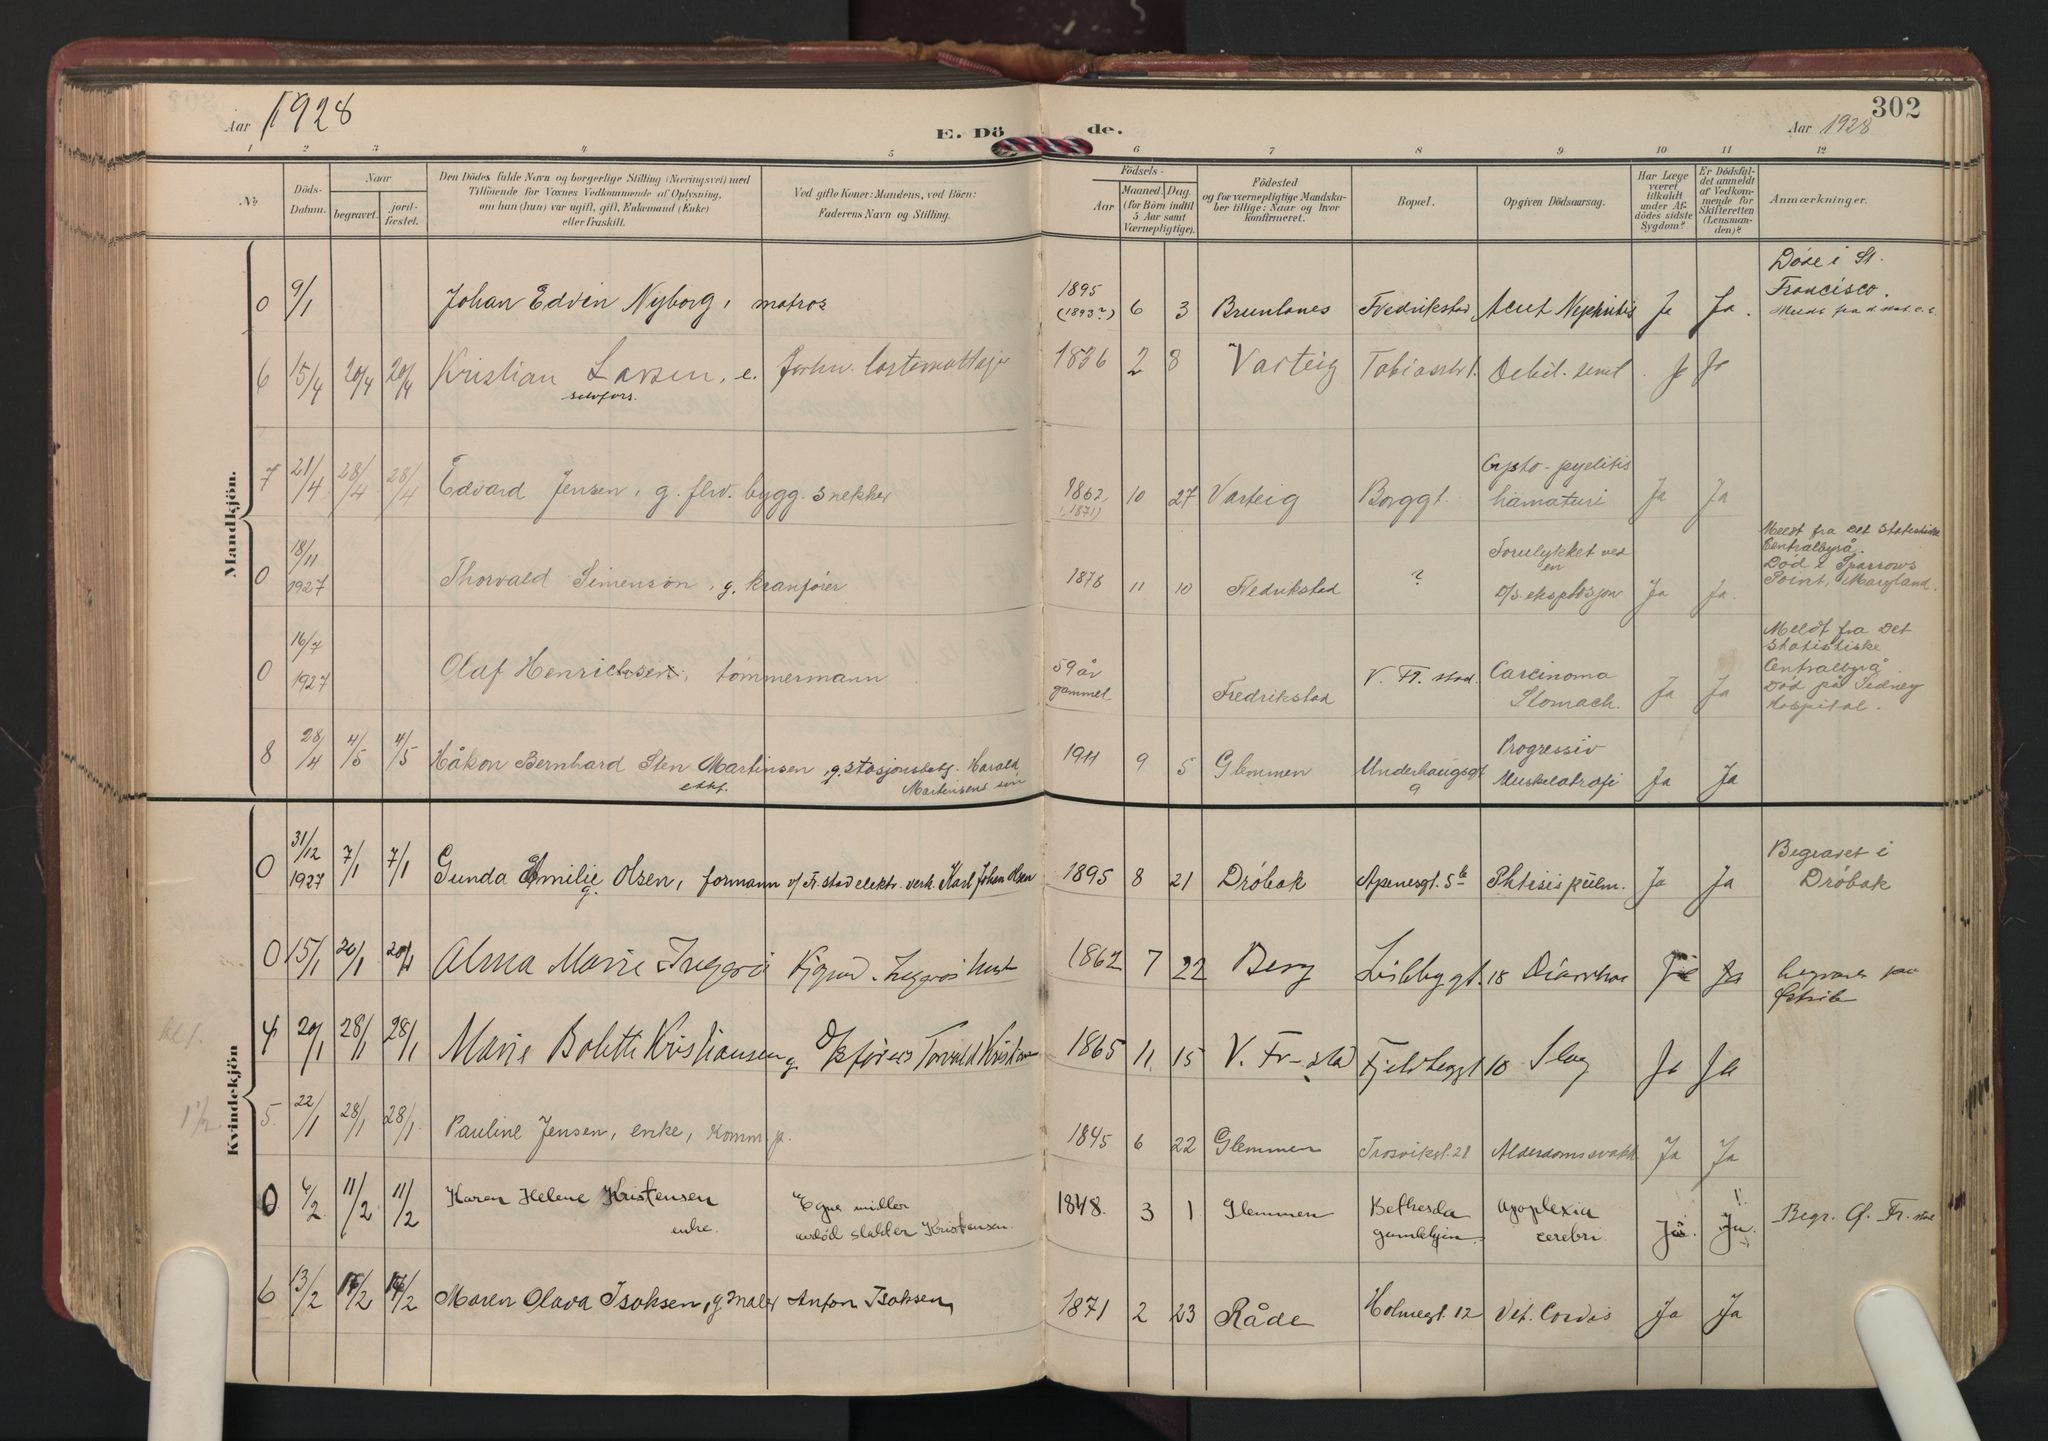 302
Aar 1928
E. Döde.
Aar 1928
1 2 3 4 5 6 7 8 9 10 11 12
No
Döds-Datum.
Naar
begravet.
jordfæstet.
Den Dödes fulde Navn og borgerlige Stilling (Næringsvei) med
Tilföiende for Voxnes Vedkommende af Oplysning,
om han (hun) var ugift, gift, Enkemand (Enke)
eller Fraskilt.
Ved gifte Koner: Mandens, ved Börn:
Faderens Navn og Stilling.
Födsels-
Aar
Maaned. Dag.
(for Börn indtil
5 Aar samt
Værnepligtige).
Födested
og for værnepligtige Mandskaber tillige: Naar og hvor
konfirmeret.
Bopæl.
Opgiven Dödsaarsag.
Har Læge
været
tilkaldt
under Afdödes sidste
Sygdom?
Er Dödsfaldet anmeldt
af Vedkommende for
Skifteretten
(Lensmanden)?
Anmærkninger.
Mandkjön.
0 9/1 Johan Edvin Nyborg, matros 1895 (1893?) 6 3 Brunlanes Fredrikstad Acut Nephritis Ja Ja.
Döde i St.
Francisco.
6 15/4 20/4 20/4 Kristian Larsen, e. 1836 2 8 Varteig Debil. Ja Ja
selvfors.
7 21/4 28/4 28/4 Edvard Jensen, g. flrv. bygg.snekker 1862 (1871) 10 27 Varteig Borggt. pyelitis
hämaturi Ja Ja
0 18/11 1927 Thorvald Simenson, g. kranförer 1876 11 10 Fredrikstad ? Forulykket ved
en
eksplosjon Ja Ja.
Meldt fra Det Statistiske
Centralbyrå.
Död i Sparrows
Point, Maryland.
0 16/7 1927 Olaf Henrichsen, tömmermann 59 år
gammel Fredrikstad V. Fr. stad. Carcinoma
Stomach. Ja Ja
Meldt fra Det
Statistiske
Centralbyrå
Död på Sidney
Hospital.
8 28/4 4/5 4/5 Håkon Bernhard Sten Martinsen, g. stasjonsbetj. Harald
Martinsens sön 1911 9 5 Glemmen Underhaugsgt
9 Progressiv
Muskelatrofi Ja Ja
Kvindekjön
0 31/12 1927 7/1 7/1 Gunda Emilie Olsen, formann v/ Fr.stad elektr. verk Karl Johan Olsen
g. 1895 8 21 Dröbak Apenesgt. 5b Phtisis pulm. Ja Ja
Begravet i
Dröbak
0 15/1 20/1 20/1 Alma Marie 1862 7 22 Berg 18 Diarrhoe Ja Ja
4 20/1 28/1 28/1 Marie Bolette Kristiansen g. Torvald 1865 11 15 V. Fr-stad 10 Slag Ja Ja
1 1/2
5. 22/1 28/1 28/1. Pauline Jensen, enke, 1845 6 22 Glemmen Trosvikgt. 28 Alderdomssvakh. Ja Ja
0 6/2 11/2 11/2 Karen Helene Kristensen
enke. Egne midler
avdöd slakter Kristensen. 1848. 3 1 Glemmen Bethesda
gamlehjem. Apoplexia
cerebri. Ja. Ja. Begr. Ø. Fr. stad
6 13/2 Maren Olava Isaksen, g maler Anton Isaksen, 1871 2 23 Råde Holmegt. 12 Vit. Cordis Ja Ja